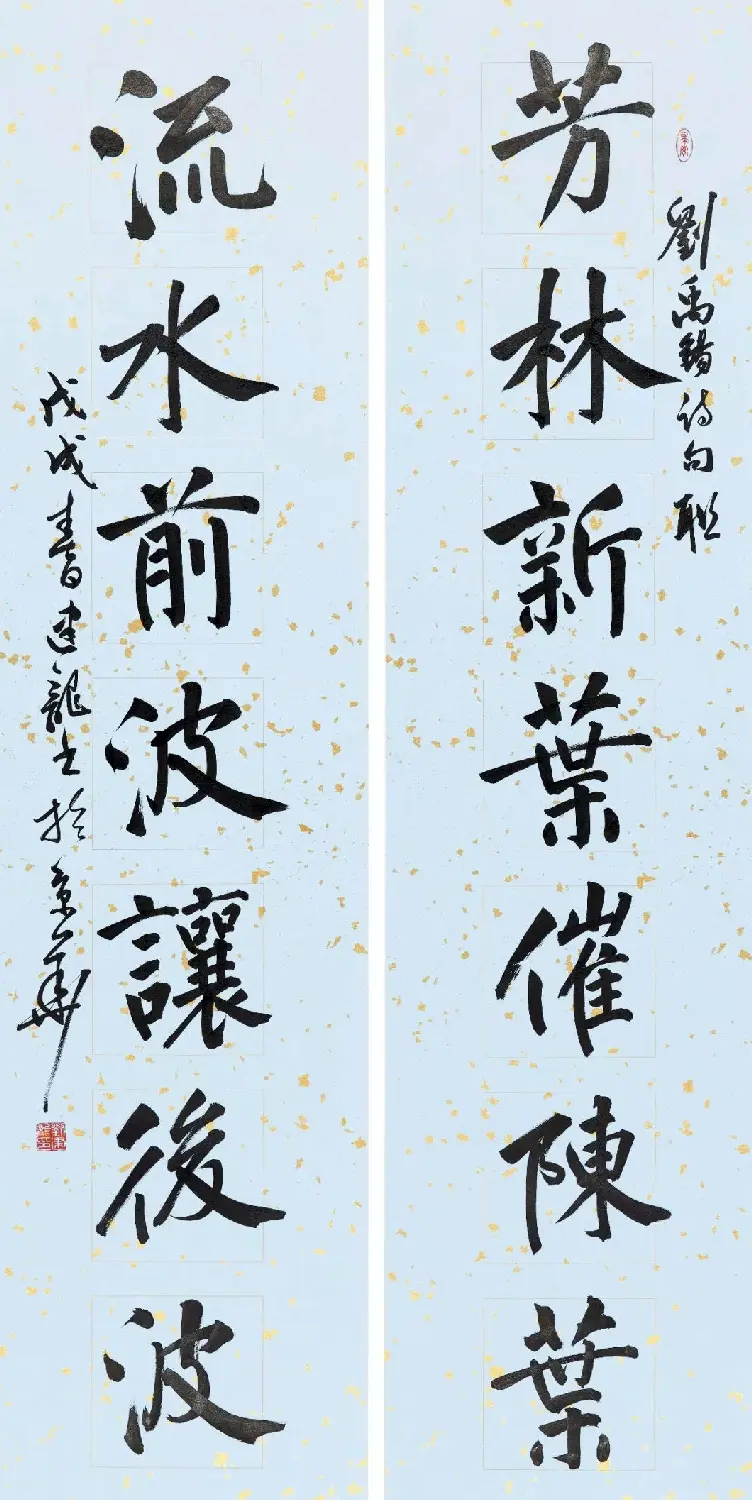 劉禹錫詩句聯
芳林新葉催陳葉
流水前波讓後波
戊戌春建龍書於京華